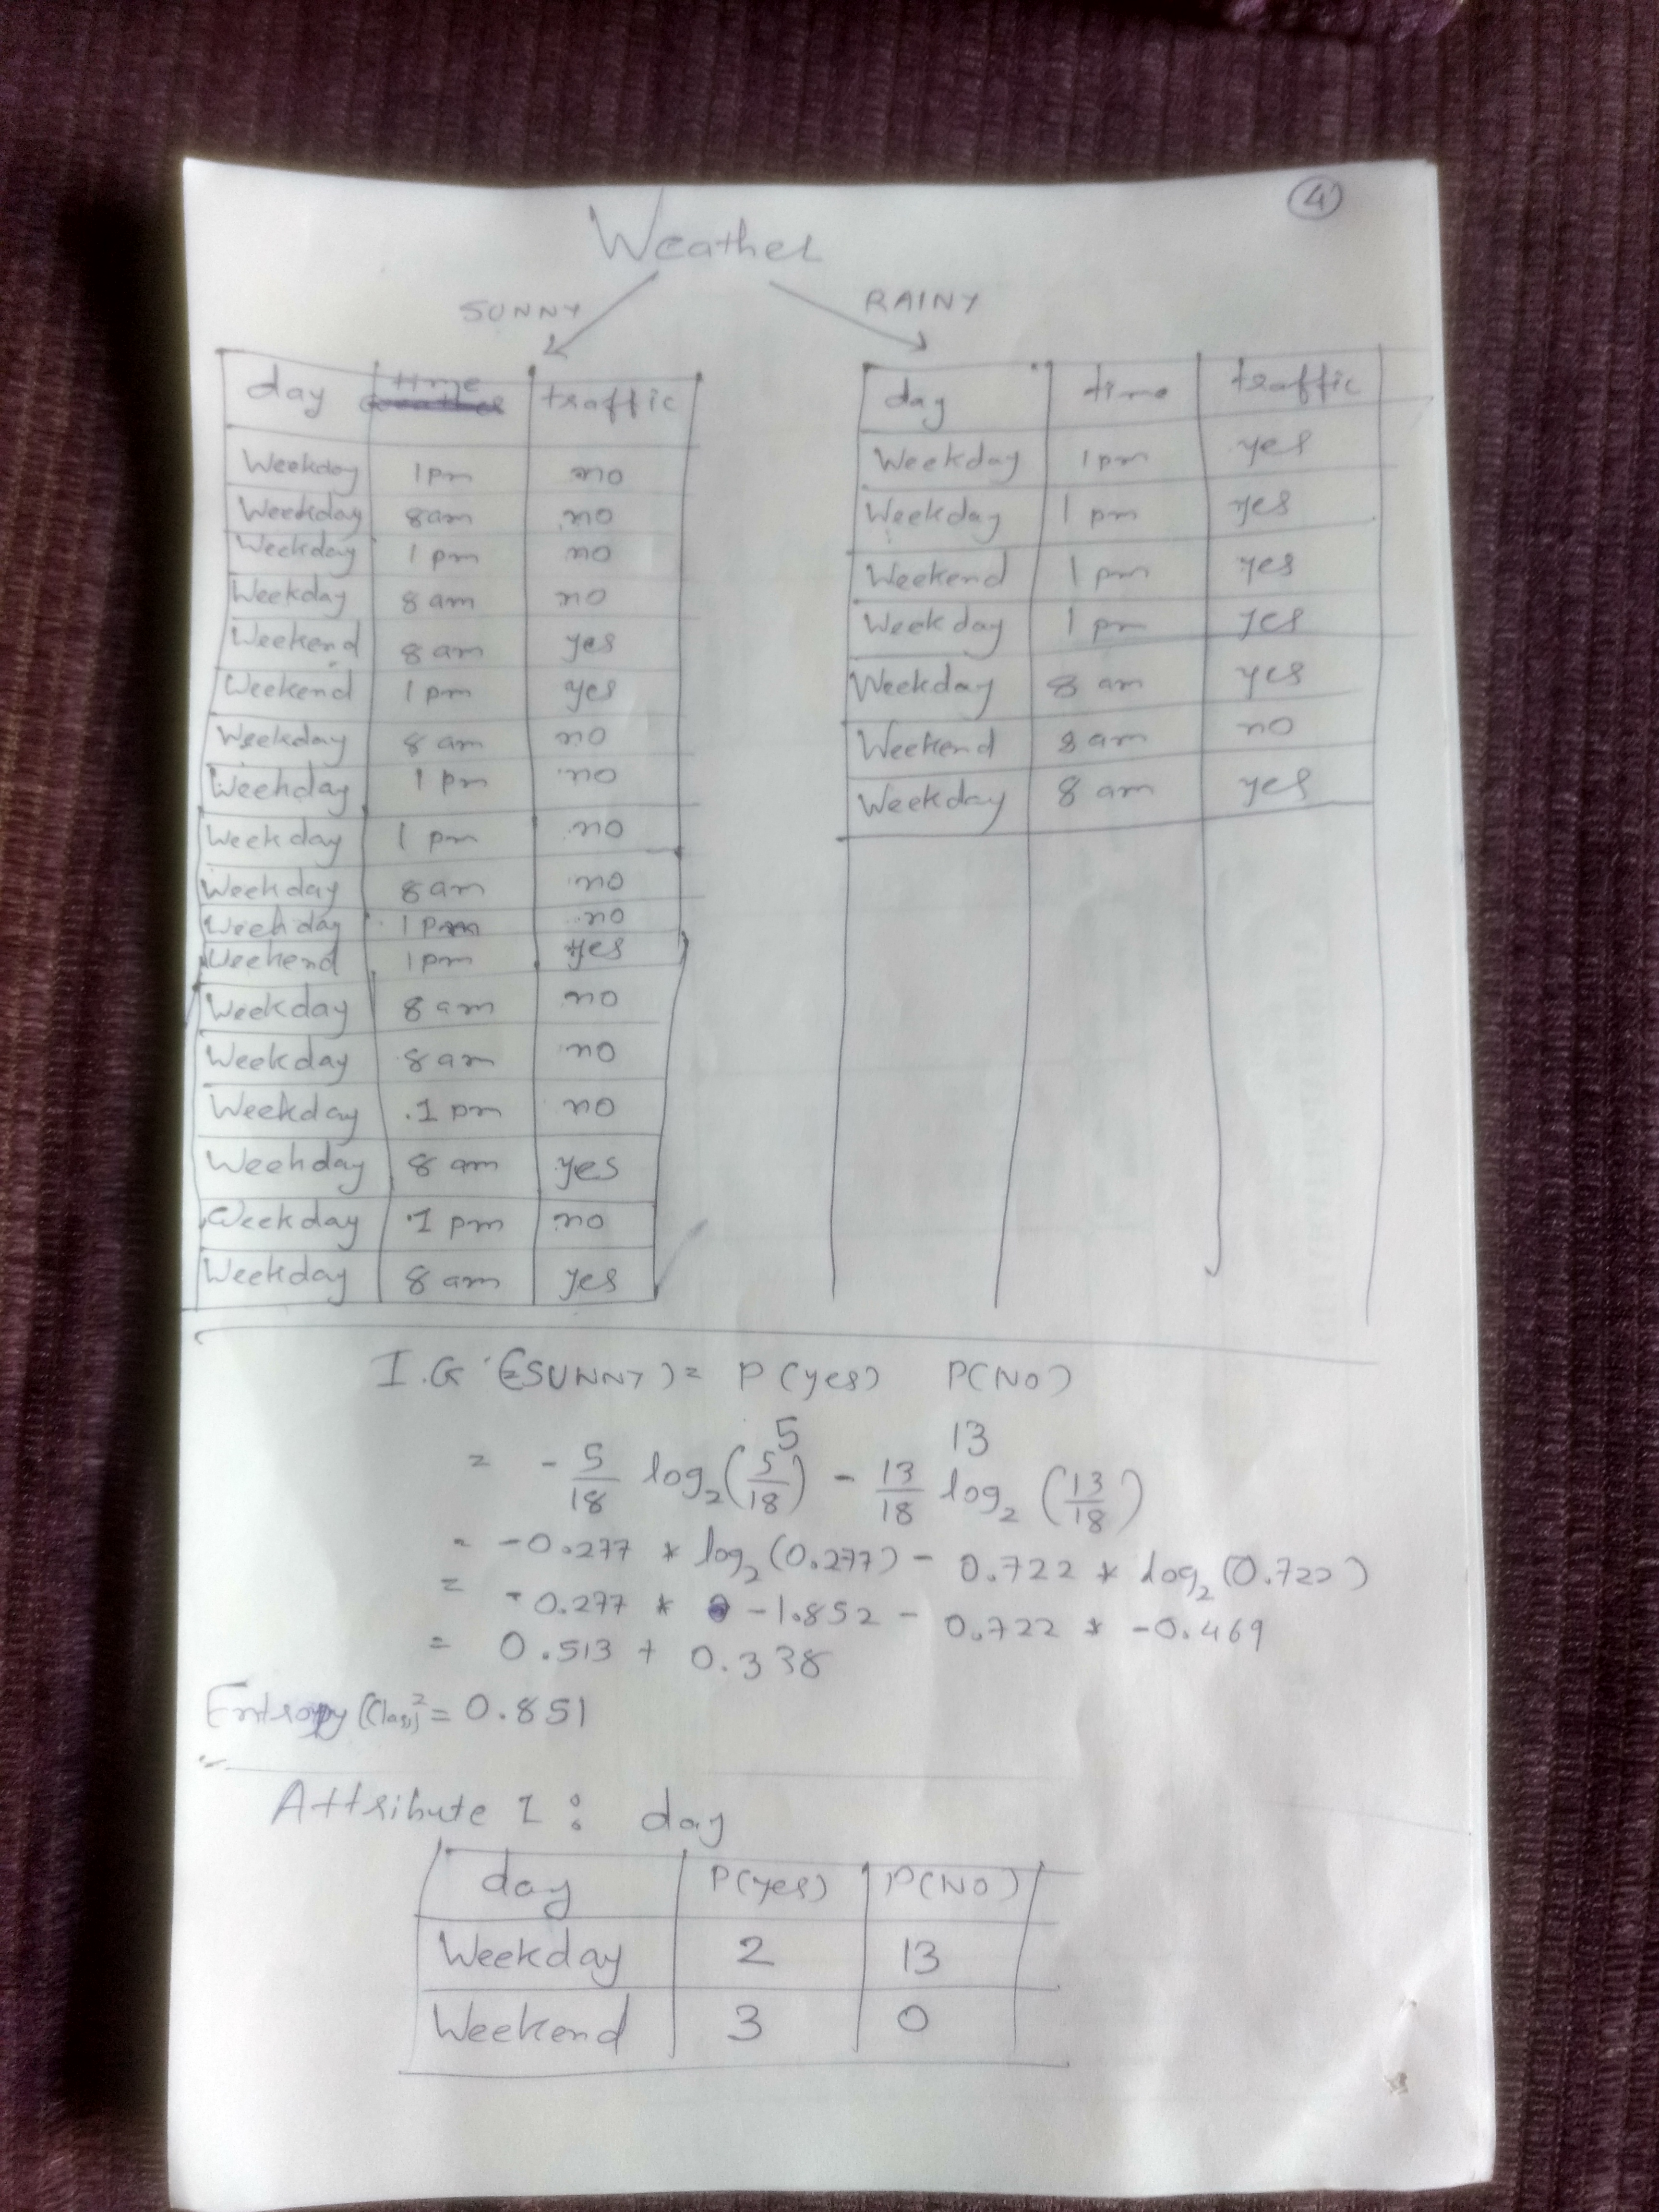 4
Weather
SUNNY RAINY
day time traffic
Weekday 1pm no
Weekday 8am no
Weekday 1pm no
Weekday 8am no
Weekend 8am yes
Weekend 1pm yes
Weekday 8am no
Weekday 1pm no
Weekday 1pm no
Weekday 8am no
Weekday 1pm no
Weekend 1pm yes
Weekday 8am no
Weekday 8am no
Weekday .1 pm no
Weekday 8am yes
Weekday .1 pm no
Weekday 8am yes
day time traffic
Weekday 1pm yes
Weekday 1pm yes
Weekend 1pm yes
Weekday 1pm yes
Weekday 8am yes
Weekend 8am no
Weekday 8am yes
I.G (SUNNY) = P(yes) P(NO)
5 13
= - 5/18 log₂(5/18) - 13/18 log₂(13/18)
= -0.277 * log₂(0.277) - 0.722 * log₂(0.722)
= -0.277 * -1.852 - 0.722 * -0.469
= 0.513 + 0.338
Entropy (Class) = 0.851
Attribute 1: day
day P(yes) P(NO)
Weekday 2 13
Weekend 3 0